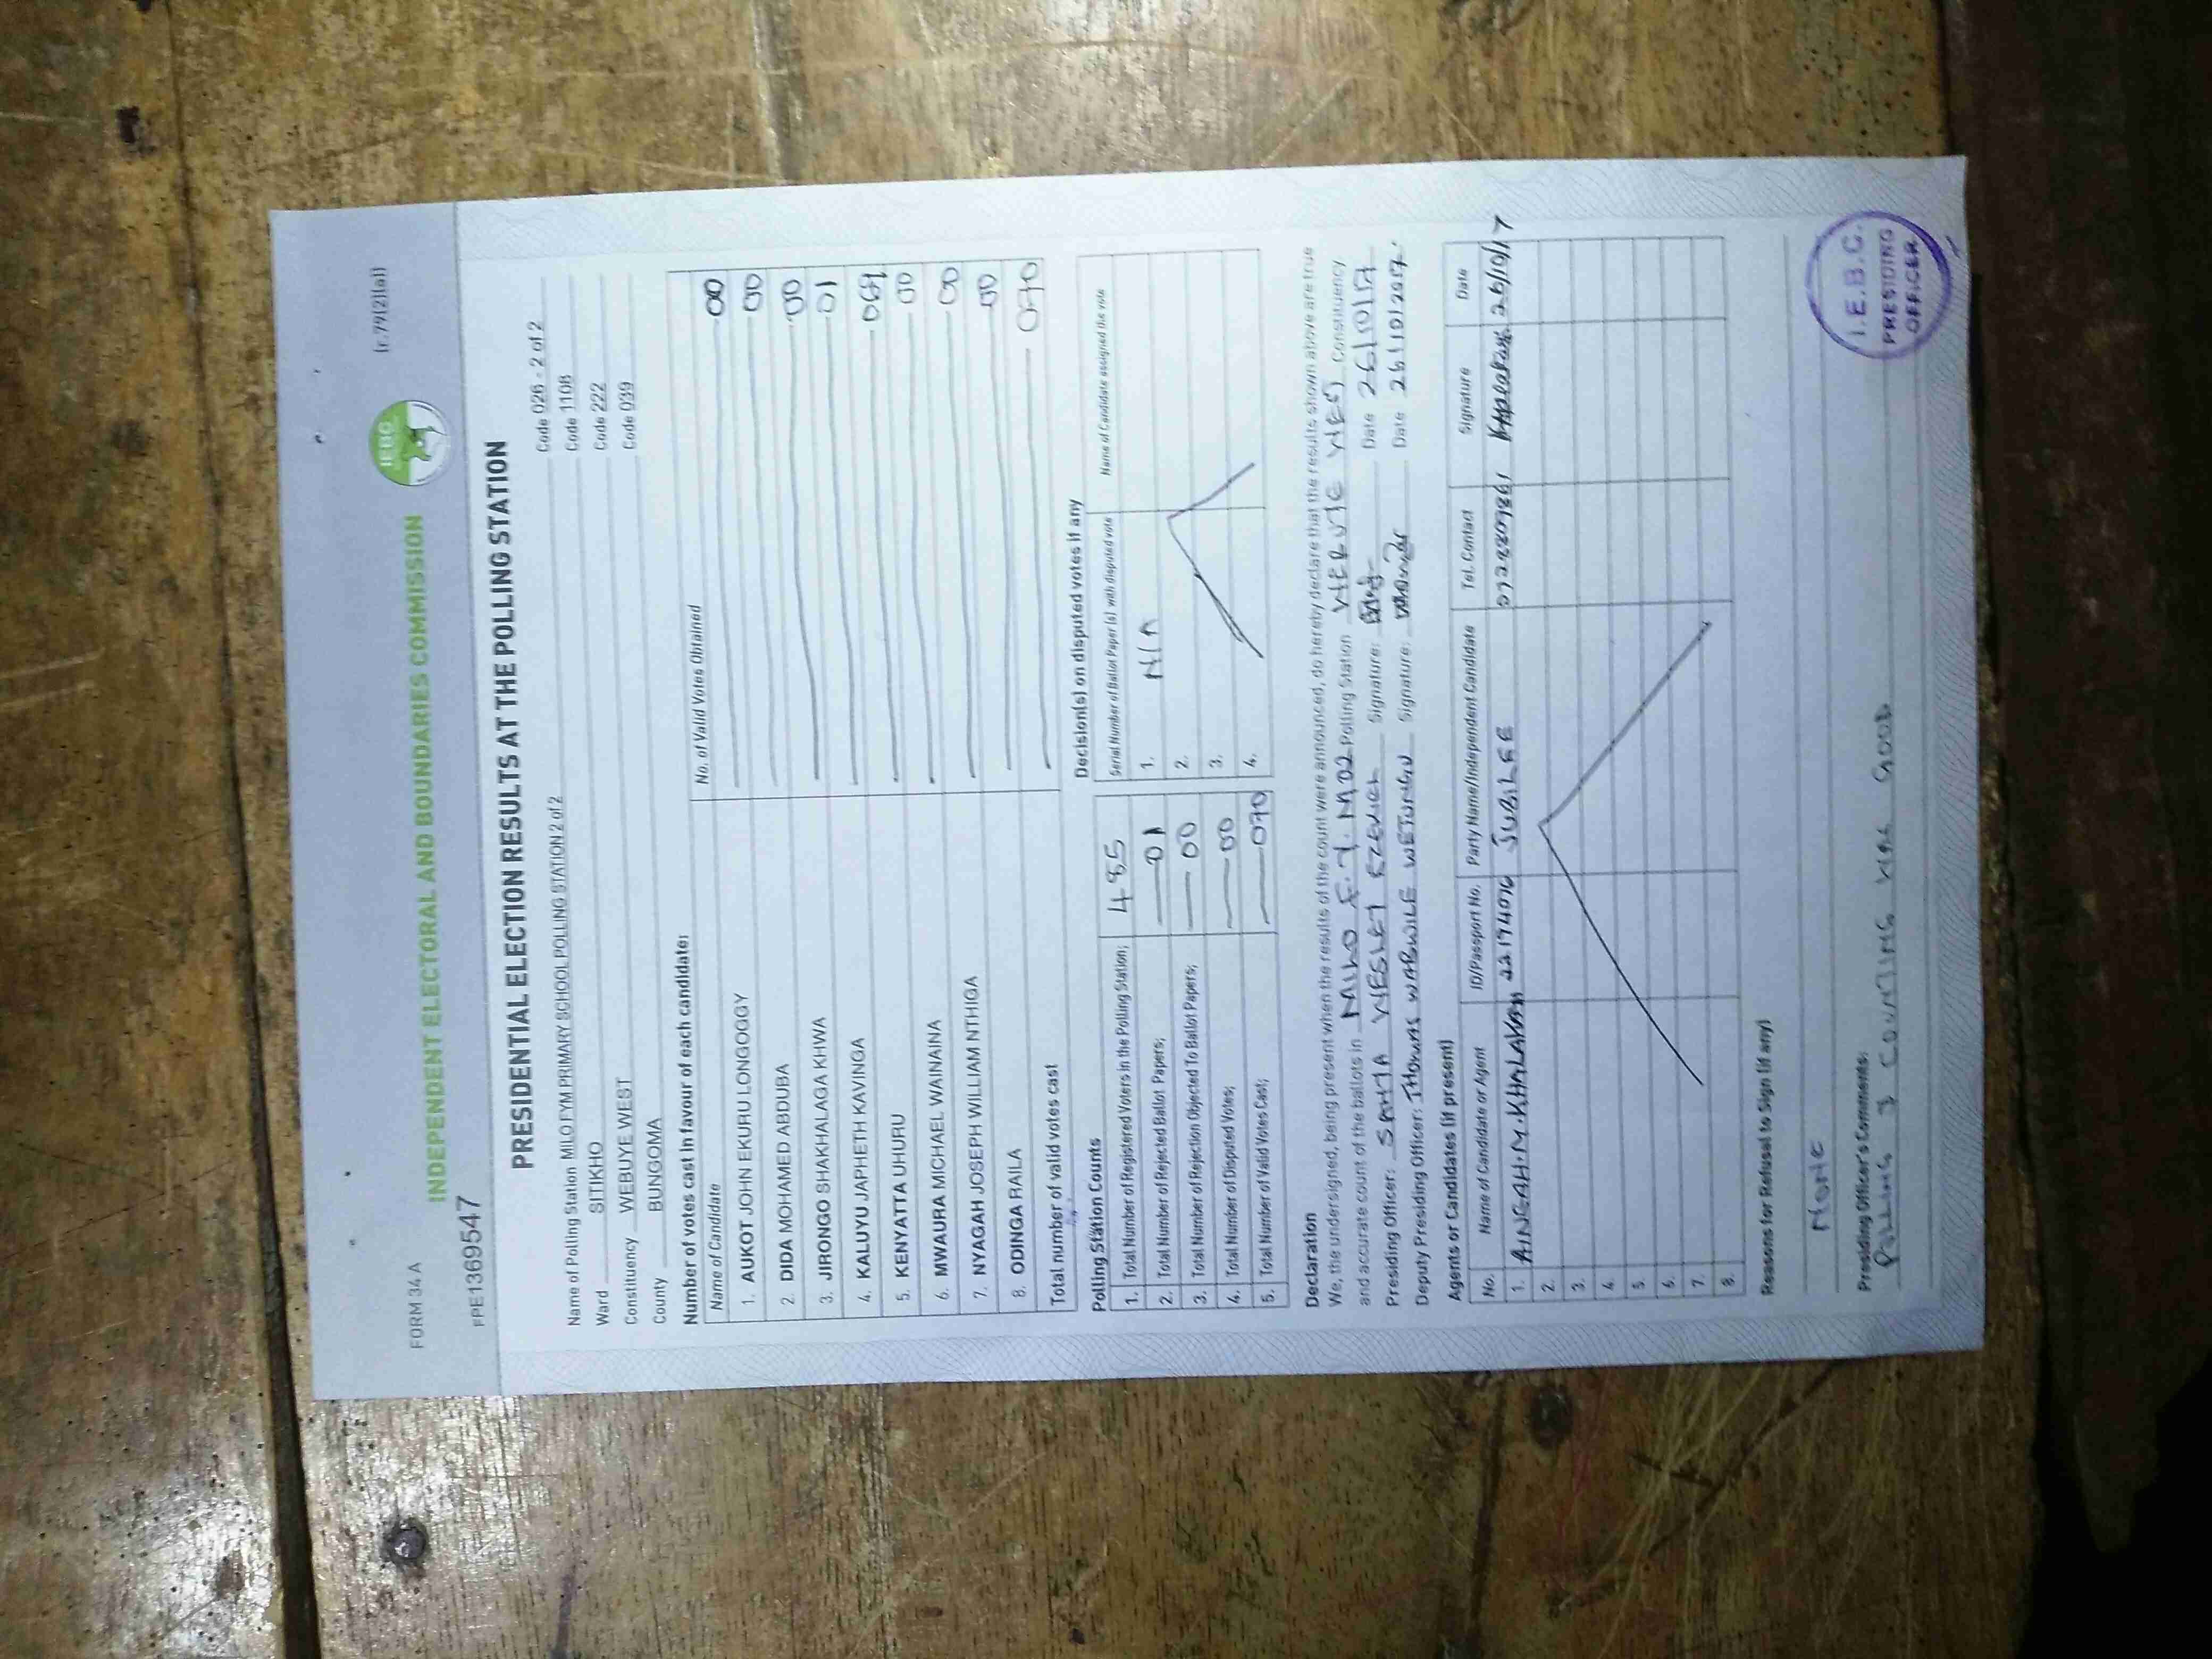 FORM 34 A
(r.79(2)(a))
IEBC
INDEPENDENT ELECTORAL AND BOUNDARIES COMMISSION
PPE1369547
PRESIDENTIAL ELECTION RESULTS AT THE POLLING STATION
Name of Polling Station MILO FYM PRIMARY SCHOOL POLLING STATION 2 of 2 Code 026 - 2 of 2
Ward SITIKHO Code 1108
Constituency WEBUYE WEST Code 222
County BUNGOMA Code 039
Number of votes cast in favour of each candidate:
Name of Candidate No. of Valid Votes Obtained
1. AUKOT JOHN EKURU LONGOGGY 00
2. DIDA MOHAMED ABDUBA 00
3. JIRONGO SHAKHALAGA KHWA 00
4. KALUYU JAPHETH KAVINGA 01
5. KENYATTA UHURU 069
6. MWAURA MICHAEL WAINAINA 00
7. NYAGAH JOSEPH WILLIAM NTHIGA 00
8. ODINGA RAILA 00
Total number of valid votes cast 070
Polling Station Counts
1. Total Number of Registered Voters in the Polling Station; 485
2. Total Number of Rejected Ballot Papers; 01
3. Total Number of Rejection Objected To Ballot Papers; 00
4. Total Number of Disputed Votes; 00
5. Total Number of Valid Votes Cast; 070
Decision(s) on disputed votes if any
Serial Number of Ballot Paper(s) with disputed vote Name of Candidate assigned the vote
1. N/A
2.
3.
4.
Declaration
We, the undersigned, being present when the results of the count were announced, do hereby declare that the results shown above are true
and accurate count of the ballots in MILO F.Y.M 02 Polling Station WEBUYE WEST Constituency
Presiding Officer: SAHYA WESLEY Signature: Date 26/10/17
Deputy Presiding Officer: THOMAS WABWILE WETUNGU Signature: Date 26/10/2017
Agents or Candidates (if present)
No. Name of Candidate or Agent ID/Passport No. Party Name/Independent Candidate Tel. Contact Signature Date
1. AINEAH.M.KHALAKAI 22174076 JUBILEE 26/10/17
2.
3.
4.
5.
6.
7.
8.
Reasons for Refusal to Sign (if any)
NONE
Presiding Officer's Comments:
POLLING & COUNTING WAS GOOD
I.E.B.C.
PRESIDING
OFFICER